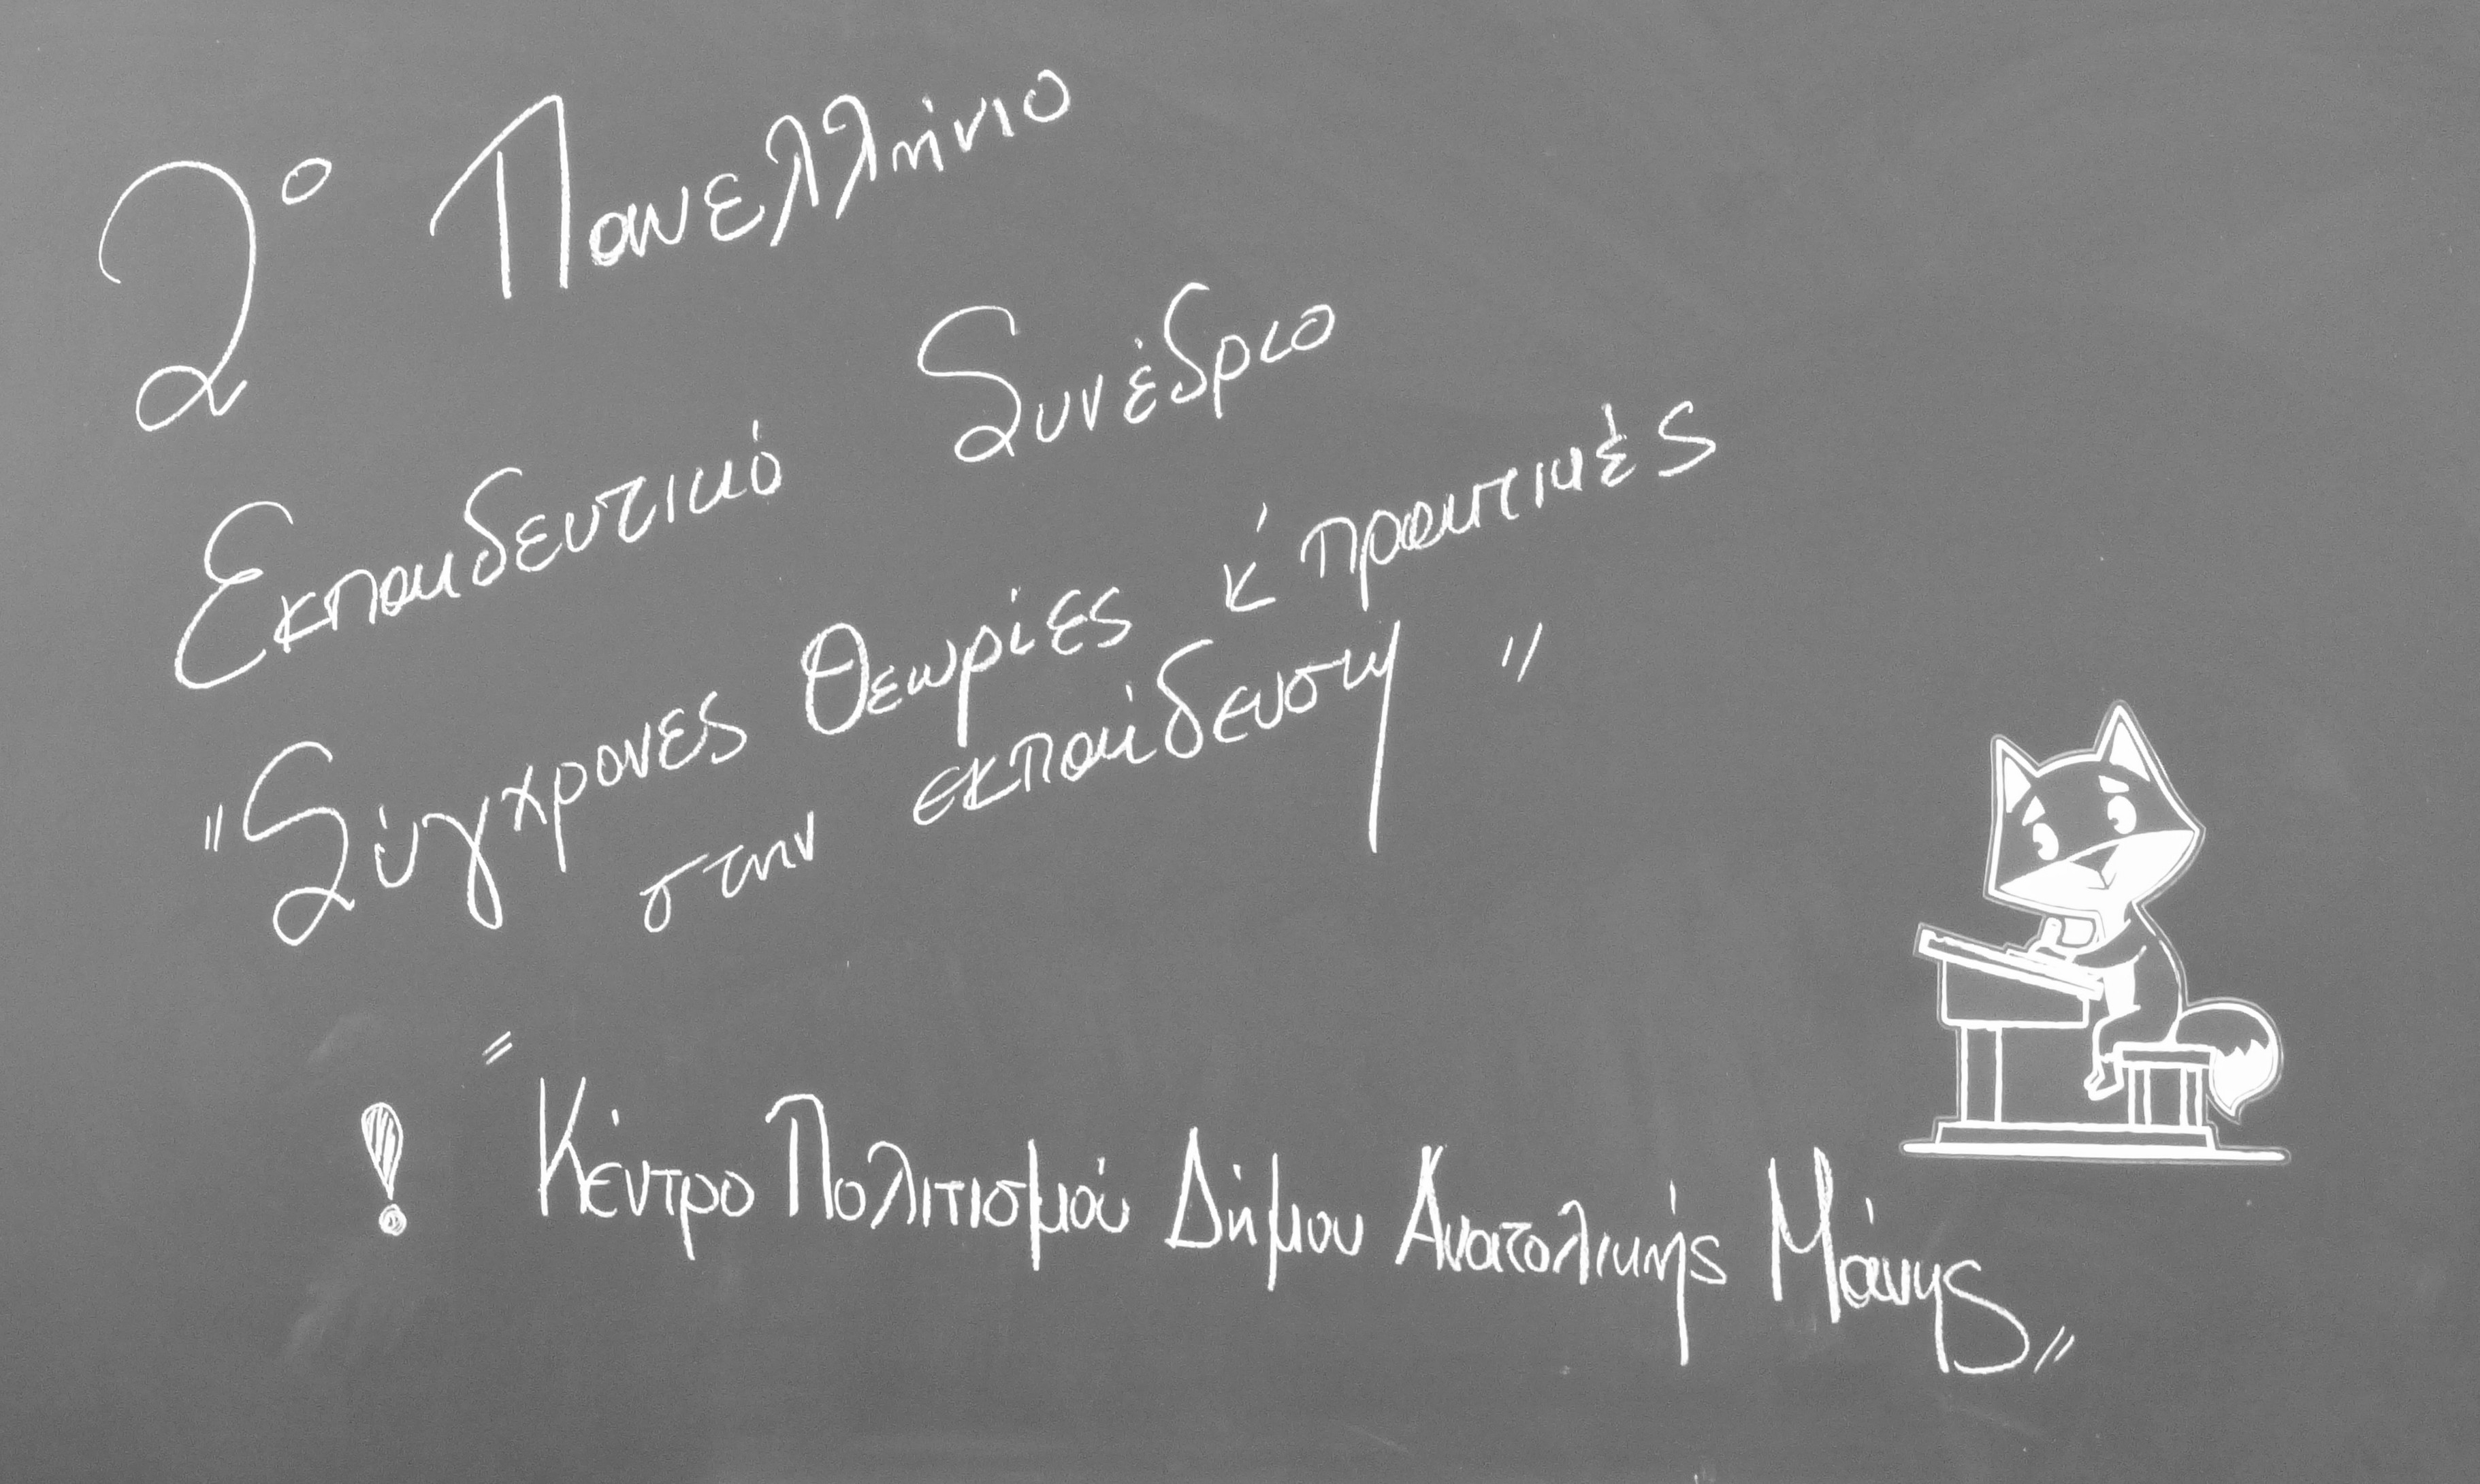 2ο Πανελλήνιο
Εκπαιδευτικό Συνέδριο
"Σύγχρονες Θεωρίες κ' πρακτικές
στην εκπαίδευση"
! "Κέντρο Πολιτισμού Δήμου Ανατολικής Μάνης"